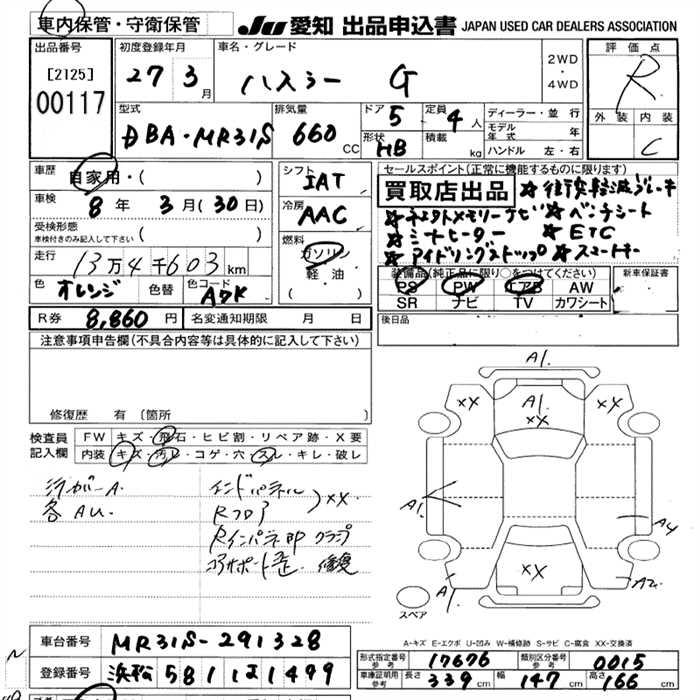 車内保管・守衛保管
JU 愛知 出品申込書 JAPAN USED CAR DEALERS ASSOCIATION
出品番号 初度登録年月 車名・グレード 評価点
[2125] 27 3月 ハスラー G 2WD・4WD R
00117
型式 排気量 ドア 5 定員 4人 ディーラー・並行 外装 内装
DBA・MR31S 660CC 形状 HB 積載 kg モデル年式 年 C
ハンドル 左・右
車歴 自家用・( ) シフト IAT セールスポイント(正常に機能するものに限ります)
車検 8年 3月(30日) 冷房 AAC 買取店出品 ☆衝突軽減ブレーキ
受検形態 車検付きのみ記入して下さい ( )
☆ベンチシート
走行 13万4千603km 燃料 ガソリン・軽油 ( ) ☆シートヒーター ☆ETC
☆アイドリングストップ ☆スマートキー
色 オレンジ 色替 色コード A7K 装備品(純正品に限り○をつけてください) 新車保証書
PS PW エアB AW
SR ナビ TV カワシート
R券 8,860円 名変通知期限 月 日 後日品
注意事項申告欄(不具合内容等は具体的に記入して下さい)
修復歴 有 (箇所
検査員記入欄 FW キズ・飛石・ヒビ割・リペア跡・X要
内装 キズ・汚レ・コゲ・穴・スレ・キレ・破レ
A1.
A1. XX XX XX
各AU. インドパネル
Rフロア XX
Rインパネ
コアサポート歪 修復
A1. A4
XX
A1 A2
スペア
A-キズ E-エクボ U-凹み W-補修跡 S-サビ C-腐食 XX-交換済
車台番号 MR31S-291328
登録番号 浜松 581 1499
形式指定番号 参考 17676 類別区分番号 参考 0015
車庫証明用 参考 長さ 339cm 幅 147cm 高さ 166cm